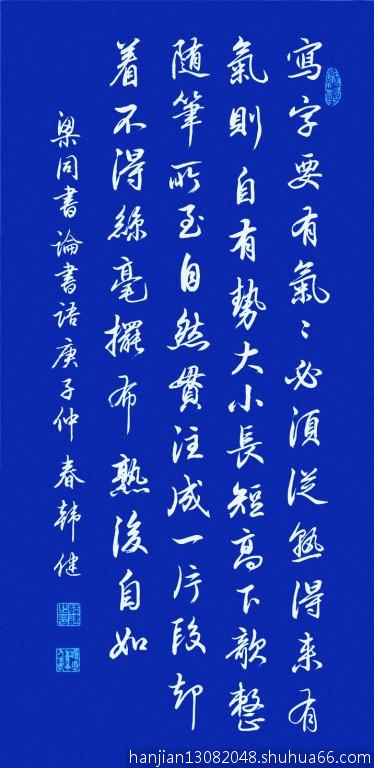 寫字要有氣〻必須從熟得來有
氣則自有勢大小長短高下欹整
随筆所至自然貫注成一片段却
着不得絲毫擺布熟後自如
梁同書論書語庚子仲春韩健
hanjian13082048.shuhua66.com